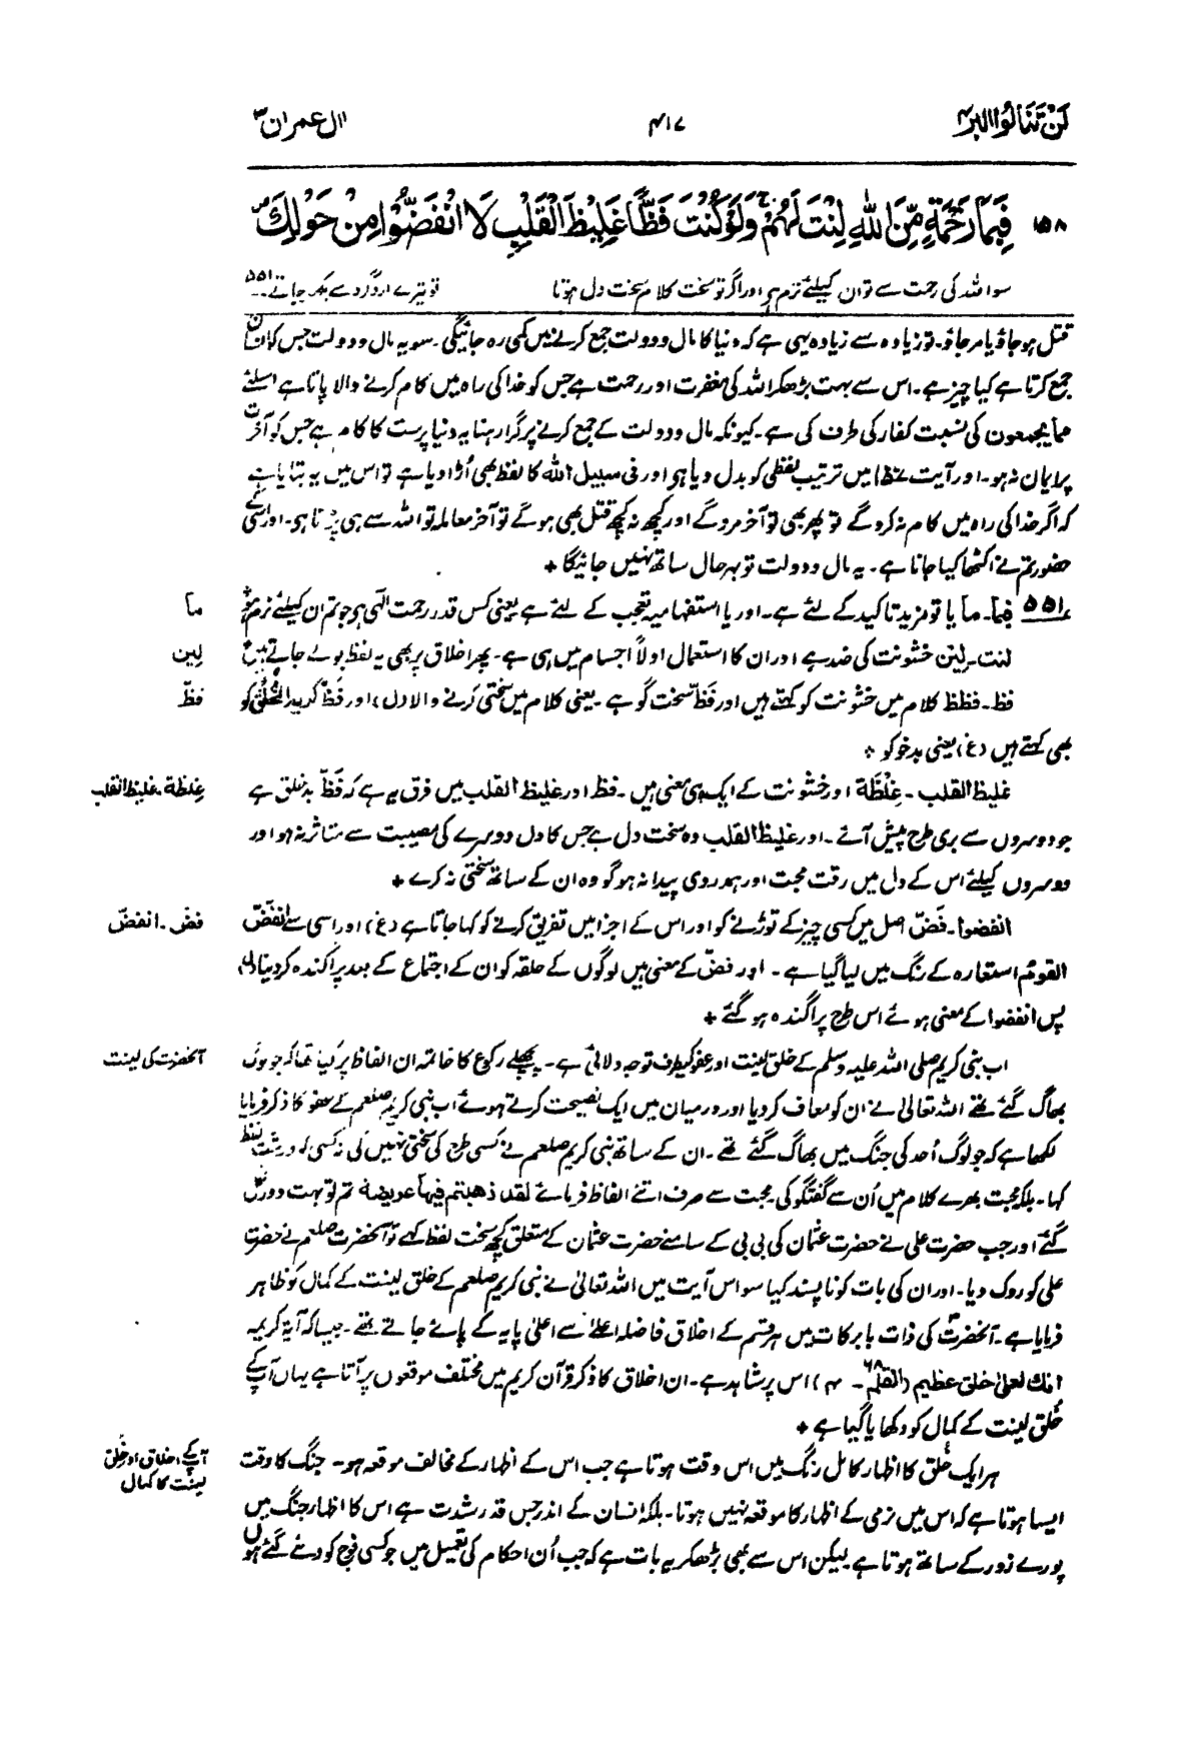 لَنْ تَنَالُوا الْبِرَّ ۴
۴۱۷
اٰل عمران ۳
۱۵۸ فَبِمَا رَحْمَةٍ مِّنَ اللّٰهِ لِنْتَ لَهُمْ ۚ وَلَوْ كُنْتَ فَظًّا غَلِيْظَ الْقَلْبِ لَا انْفَضُّوْا مِنْ حَوْلِكَ ۪
سو اللہ کی رحمت سے تو ان کیلئے نرم ہے اور اگر تو سخت کلام سخت دل ہوتا تو تیرے اردگرد سے بکھر جاتے ۵۵۱
قتل ہو جاؤ یا مر جاؤ۔ تو زیادہ سے زیادہ یہی ہے کہ دنیا کا مال و دولت جمع کرنے میں کمی رہ جائیگی۔ سو یہ مال و دولت جس کو انسان
جمع کرتا ہے کیا چیز ہے۔ اس سے بہت بڑھکر اللہ کی مغفرت اور رحمت ہے جس کو خدا کی راہ میں کام کرنے والا پاتا ہے اسلئے
مما یجمعون کی نسبت کفار کی طرف کی ہے۔ کیونکہ مال و دولت کے جمع کرنے پر گرا رہنا یہ دنیا پرست کا کام ہے جس کو آخرت
پر ایمان نہ ہو۔ اور آیت ۱۵۷ میں ترتیب لفظی کو بدل دیا ہے اور فی سبیل اللہ کا لفظ بھی اُڑا دیا ہے تو اس میں یہ بتایا ہے
کہ اگر خدا کی راہ میں کام نہ کرو گے تو پھر بھی تو آخر مرو گے اور کچھ نہ کچھ قتل بھی ہو گے تو آخر معاملہ تو اللہ سے ہی پڑتا ہے۔ اور اسی کے
حضور تم نے اکٹھا کیا جانا ہے۔ یہ مال و دولت تو بہرحال ساتھ نہیں جائیگا +
۵۵۱ فبما۔ ما یا تو مزید تاکید کے لئے ہے۔ اور یا استفہامیہ تعجب کے لئے ہے یعنی کس قدر رحمت الٰہی ہے جو تم ان کیلئے نرم ہو
ما
لنت۔ لین خشونت کی ضد ہے اور ان کا استعمال اولاً اجسام میں ہی ہے۔ پھر اخلاق پر بھی یہ لفظ بولے جاتے ہیں
لین
فظ۔ فظظ کلام میں خشونت کو کہتے ہیں اور فظّ سخت گو ہے۔ یعنی کلام میں سختی کرنے والا (ل) اور فَظّ کریہ الخُلُق کو
فظّ
بھی کہتے ہیں (غ) یعنی بدخو کو +
غلیظ القلب۔ غِلْظَة اور خشونت کے ایک ہی معنی ہیں۔ فظ اور غلیظ القلب میں فرق یہ ہے کہ فَظّ بدخلق ہے
غِلظة۔ غلیظ القلب
جو دوسروں سے بری طرح پیش آئے۔ اور غلیظ القلب وہ سخت دل ہے جس کا دل دوسرے کی مصیبت سے متاثر نہ ہو اور
دوسروں کیلئے اس کے دل میں رقت محبت اور ہمدردی پیدا نہ ہو گو وہ ان کے ساتھ سختی نہ کرے +
انفضوا۔ فَضّ اصل میں کسی چیز کے توڑنے کو اور اس کے اجزا میں تفریق کرنے کو کہا جاتا ہے (غ) اور اسی سے اِنْفَضّ
فضّ۔ انفضّ
القومُ استعارہ کے رنگ میں لیا گیا ہے۔ اور فضّ کے معنی ہیں لوگوں کے حلقہ کو ان کے اجتماع کے بعد پراگندہ کر دینا (ل)
پس انفضوا کے معنی ہوئے اس طرح پراگندہ ہو گئے +
اب نبی کریم صلی اللہ علیہ وسلم کے خلق لینت اور عفو کیطرف توجہ دلائی ہے۔ پچھلے رکوع کا خاتمہ ان الفاظ پر کیا تھا کہ جو لوگ
آنحضرت کی لینت
بھاگ گئے تھے اللہ تعالیٰ نے ان کو معاف کر دیا اور درمیان میں ایک نصیحت کرتے ہوئے اب نبی کریم صلعم کے عفو کا ذکر فرمایا
لکھا ہے کہ جو لوگ اُحد کی جنگ میں بھاگ گئے تھے۔ ان کے ساتھ نبی کریم صلعم نے کسی طرح کی سختی نہیں کی نہ کسی کو درشت لفظ
کہا۔ بلکہ محبت بھرے کلام میں اُن سے گفتگو کی۔ محبت سے صرف اتنے الفاظ فرمائے لقد ذھبتم فیھا عریضة تم تو بہت دور نکل
گئے اور جب حضرت علی نے حضرت عثمان کی بی بی کے سامنے حضرت عثمان کے متعلق کچھ سخت لفظ کہے تو آنحضرت صلعم نے حضرت
علی کو روک دیا۔ اور ان کی بات کو ناپسند کیا سو اس آیت میں اللہ تعالیٰ نے نبی کریم صلعم کے خلق لینت کے کمال کو ظاہر
فرمایا ہے۔ آنحضرتؐ کی ذات بابرکات میں ہر قسم کے اخلاق فاضلہ اعلیٰ سے اعلیٰ پایہ کے پائے جاتے تھے۔ جیسا کہ آیۃ کریمہ
انك لعلیٰ خلق عظیم (القلم ۶۸۔ ۴) اس پر شاہد ہے۔ ان اخلاق کا ذکر قرآن کریم میں مختلف موقعوں پر آتا ہے یہاں آپ کے
خُلق لینت کے کمال کو دکھایا گیا ہے +
ہر ایک خُلق کا اظہار کامل رنگ میں اس وقت ہوتا ہے جب اس کے اظہار کے مخالف موقعہ ہو۔ جنگ کا وقت
آپ کے اخلاق اور خلق
لینت کا کمال
ایسا ہوتا ہے کہ اس میں نرمی کے اظہار کا موقعہ نہیں ہوتا۔ بلکہ انسان کے اندر جس قدر شدت ہے اس کا اظہار جنگ میں
پورے زور کے ساتھ ہوتا ہے لیکن اس سے بھی بڑھکر یہ بات ہے کہ جب اُن احکام کی تعمیل میں جو کسی فوج کو دئے گئے ہوں